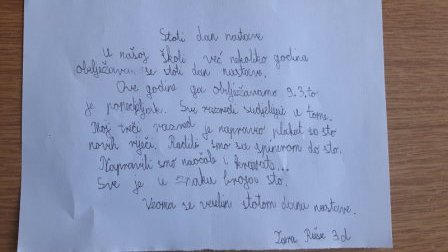 Stoti dan nastave
U našoj školi već nekoliko godina
obilježavamo se stoti dan nastave.
Ove godine ga obilježavamo 9.3. to
je ponedjeljak. Svi razredi sudjeluju u tome.
Moj treći razred je napravio plakat sa sto
novih riječi. Radili smo sa spinerom do sto.
Napravili smo naočale i krune...
Sve je u znaku broja sto.
Veoma se veselim stotom danu nastave.
Zara Ruše 3.d